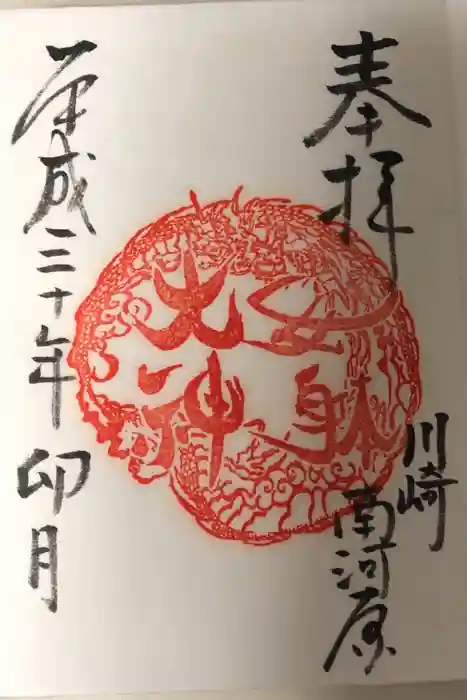 奉拝
川崎
南河原
女躰
大神
平成三十年卯月